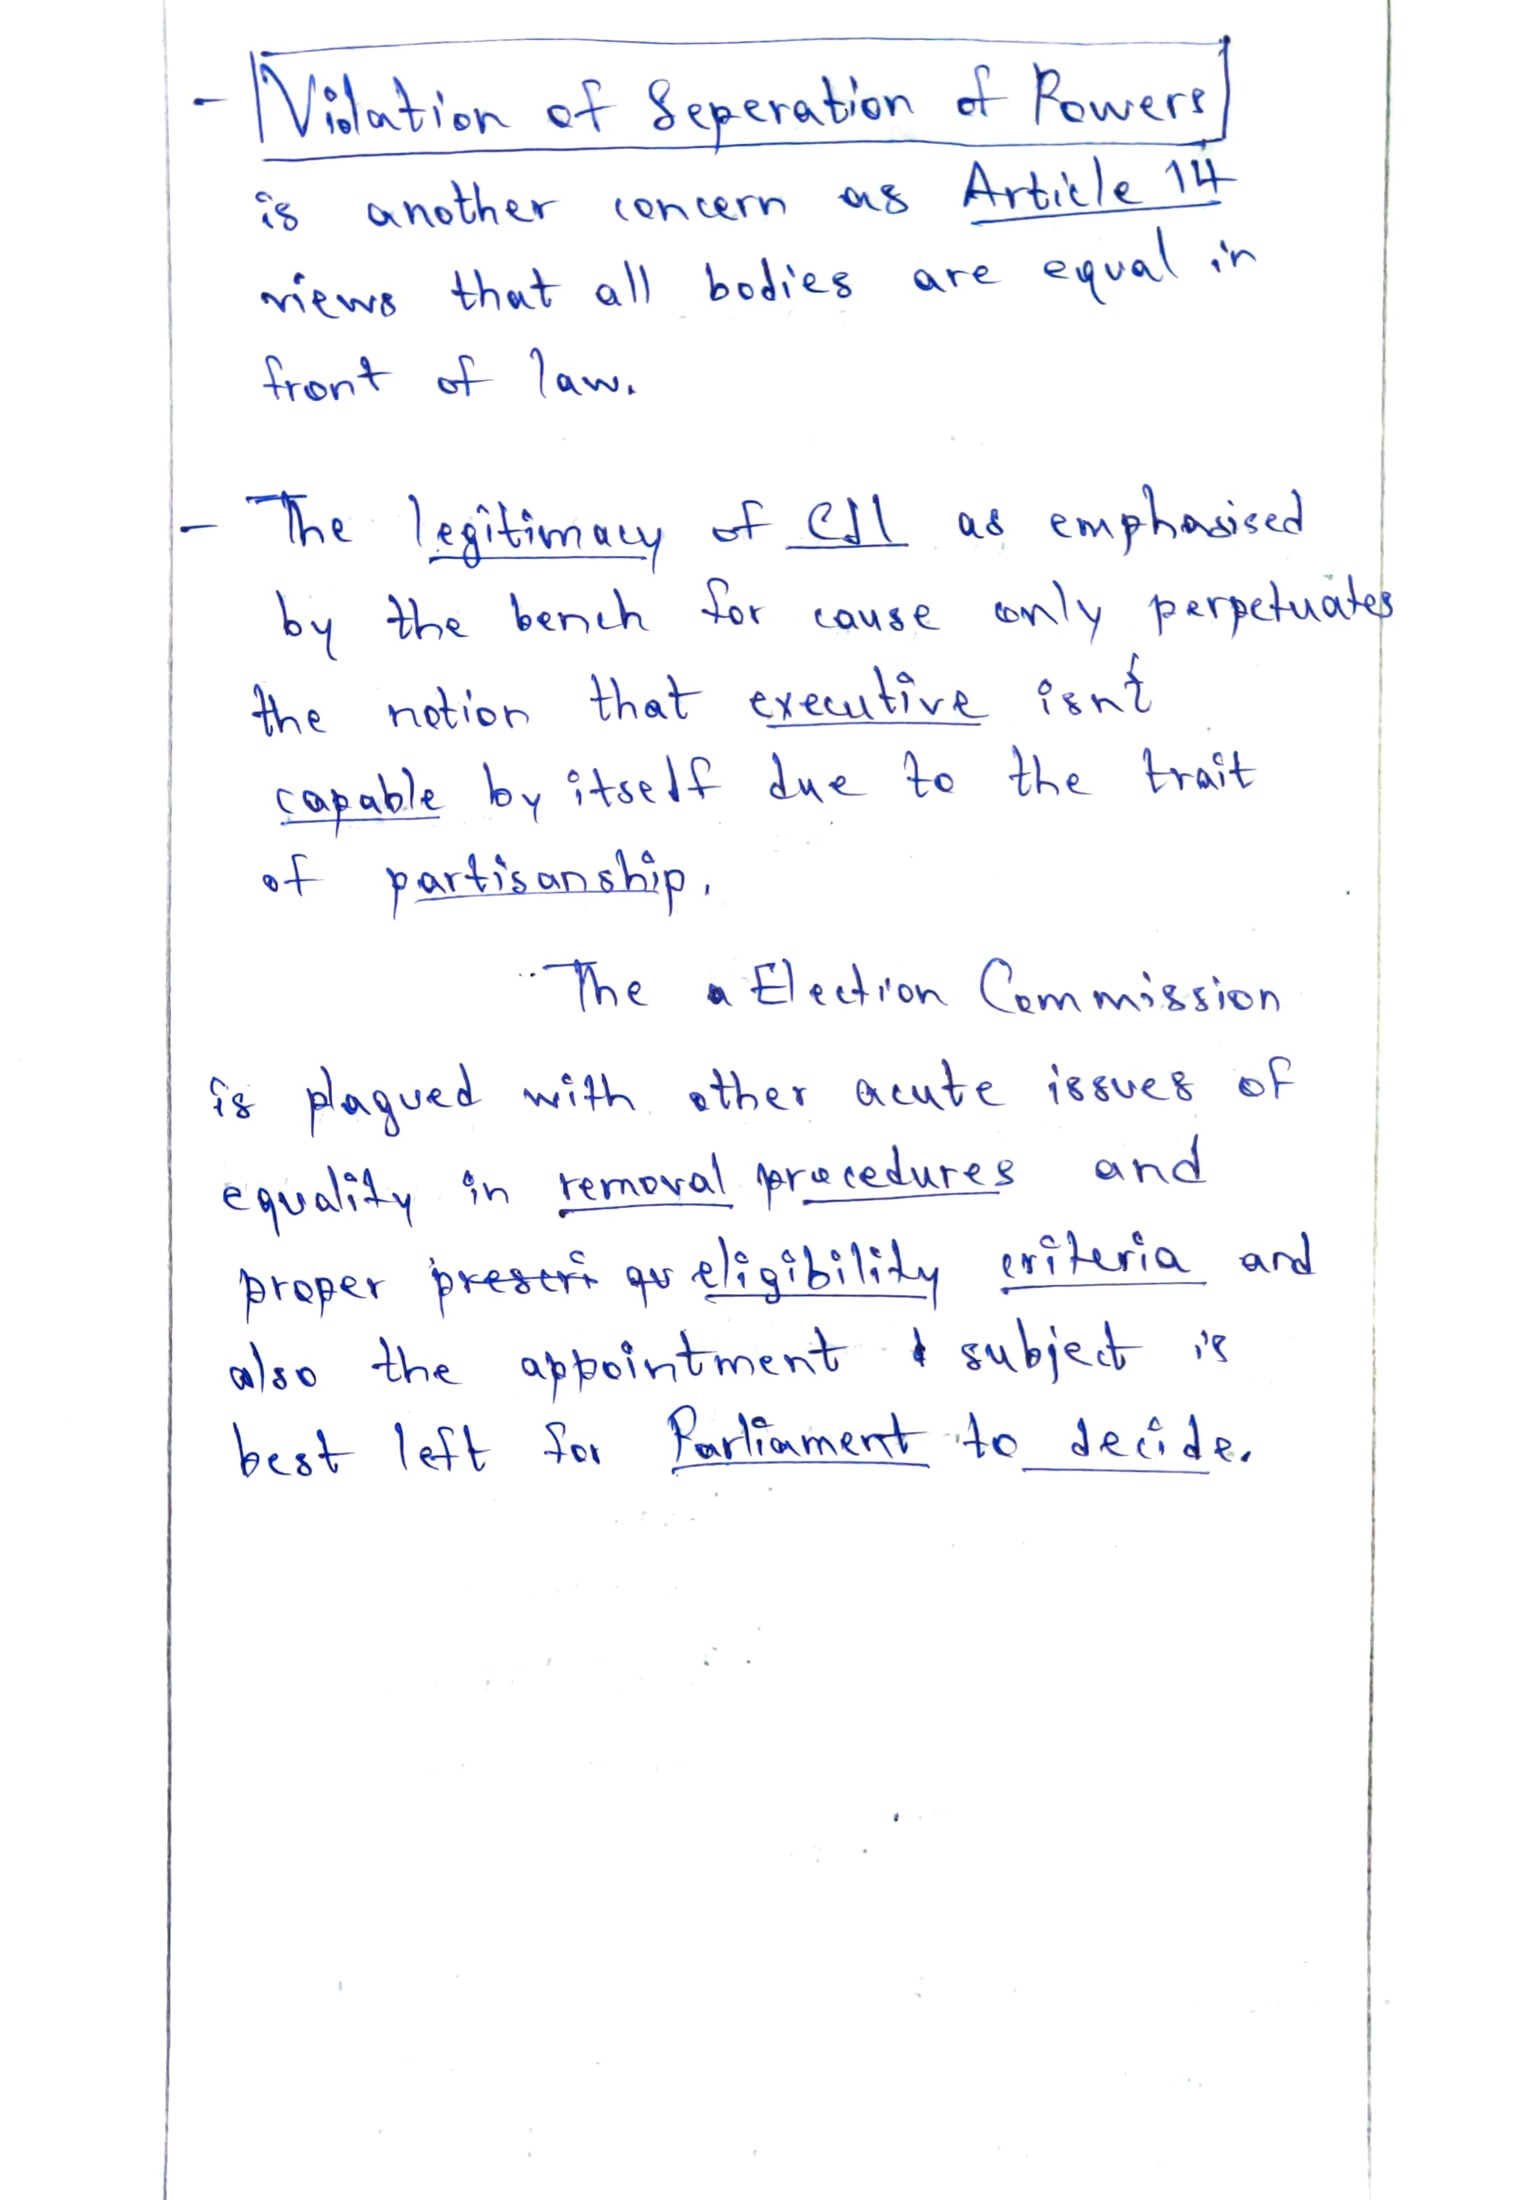 - Violation of Seperation of Powers
is another concern as Article 14
views that all bodies are equal in
front of law.
- The legitimacy of CJI as emphasised
by the bench for cause only perpetuates
the notion that executive isn't
capable by itself due to the trait
of partisanship.
The Election Commission
is plagued with other acute issues of
equality in removal procedures and
proper prescri qu eligibility criteria and
also the appointment subject is
best left for Parliament to decide.